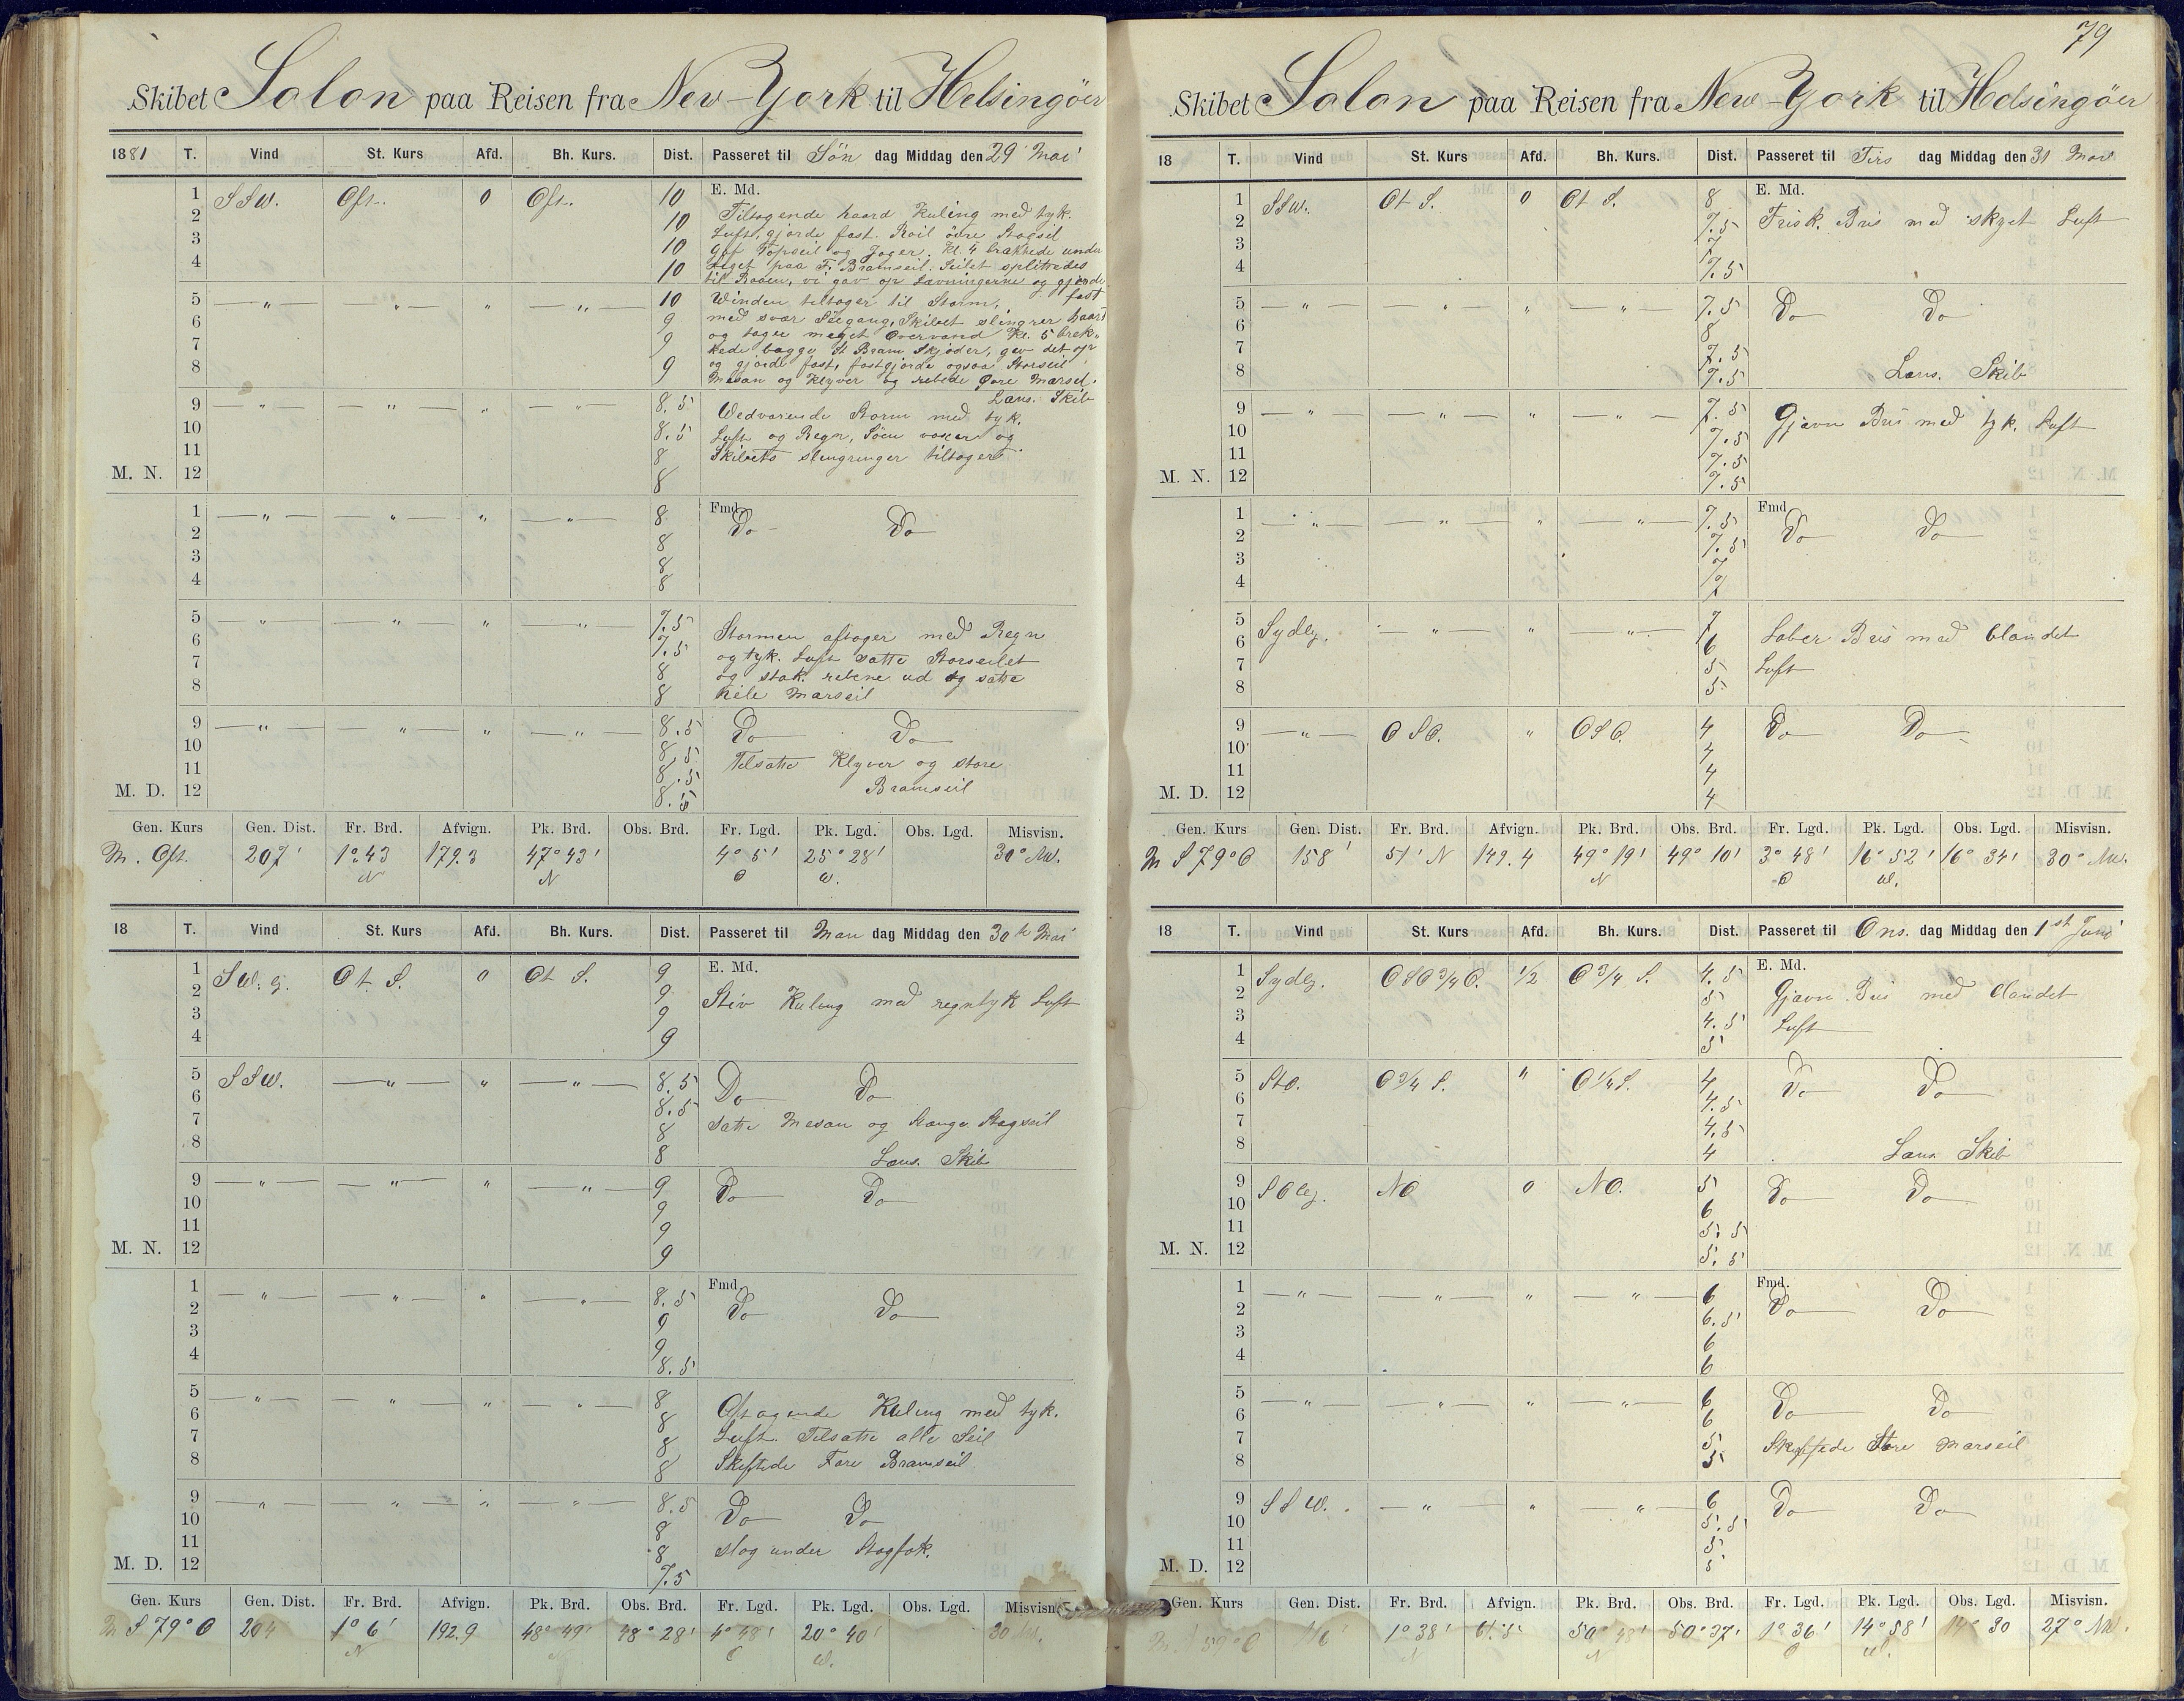 Skibet Solon paa Reisen fra New-York til Helsingöer
1881 T. Vind St. Kurs Afd. Bh. Kurs. Dist. Passeret til Søn dag Middag den 29 Mai
E. Md.
1 SSW. Ost. 0 Ost. 10
2 10 Tiltagende haard Kuling med tyk.
Luft, gjorde fast. Roil övre Stagseil
3 10 Gff Topseil og Jager. Kl. 4 brækkede under
4 10 Seget paa F. Bramseil. Seilet splittedes
til Raaen, vi gav op Levningerne og gjorde
5 — " — " " — " — 10 Winden tiltager til Storm, fast
6 9 med svær Søegang, Skibet slingrer haard
7 9 og tager meget Overvand Kl. 5 bræk-
kede begge St Bram Skjøder, gav det op
8 9 og gjorde fast, fastgjorde ogsaa Storseil
Mesan og Klyver og rebede Øvre Marseil.
Læns. Skib
9 — " — " — " — " — 8.5 Vedvarende Storm med tyk.
10 8.5 Luft og Regn, Søen voxer og
11 8 Skibets slingringer tiltager
M. N. 12 8
Fmd
1 — " — " — " — " — 8 Do Do
2 8
3 8
4 8
5 — " — " — " — " — 7.5
6 7.5 Stormen aftager med Regn
7 8 og tyk. Luft satte Storseilet
og stak. rebene ud og satte
8 8 hele Marseil
9 — " — " — " — " — 8.5 Do Do
10 8.5
11 8.5 Tilsatte Klyver og store
M. D. 12 8.5 Bramseil
Gen. Kurs Gen. Dist. Fr. Brd. Afvign. Pk. Brd. Obs. Brd. Fr. Lgd. Pk. Lgd. Obs. Lgd. Misvisn.
M. Ost. 207' 1° 43 179.3 47° 43' 4° 5' 25° 28' 30° NW.
N N O W.
18 T. Vind St. Kurs Afd. Bh. Kurs. Dist. Passeret til Man dag Middag den 30te Mai
E. Md.
1 SW. g. Ot S. 0 Ot S. 9
2 9 Stiv Kuling med regntyk Luft
3 9
4 9
5 SSW. — " — " — " — 8.5 Do Do
6 8.5
7 8 satte Mesan og Mange Stagseil
8 8 Læns. Skib
9 — " — " — " — " — 9 Do Do
10 9
11 9
M. N. 12 9
Fmd
1 — " — " — " — " — 8.5
2 9 Do Do
3 9
4 8.5
5 — " — " — " — " — 8
6 8 Aftagende Kuling med tyk.
7 8 Luft. Tilsatte alle Seil
8 8 Skiftede Fore Bramseil
9 — " — " — " — " — 8.5
10 8 Do Do
11 8 slog under Stagfok.
M. D. 12 7.5
Gen. Kurs Gen. Dist. Fr. Brd. Afvign. Pk. Brd. Obs. Brd. Fr. Lgd. Pk. Lgd. Obs. Lgd. Misvisn.
M S 79° O 204 1° 6' 192.9 48° 49' 48° 28' 4° 48' 20° 40' 30 NW.
N N O W.
79
Skibet Solon paa Reisen fra New-York til Helsingöer
18 T. Vind St. Kurs Afd. Bh. Kurs. Dist. Passeret til Tirs dag Middag den 31 Mai
E. Md.
1 SSW. Ot S. 0 Ot S. 8
2 7.5 Frisk. Bris med skyet Luft
3 7
4 7.5
5 — " — " — " — " — 7.5 Do Do
6 8
7 7.5
8 7.5 Læns. Skib
9 — " — " — " — " — 7.5 Gjævn Bris med tyk. Luft
10 7.5
11 7.5
M. N. 12 7.5
Fmd
1 — " — " — " — " — 7.5 Do Do
2 7.5
3 7
4 7
5 Sydlg. — " — " — " — 7
6 6 Laber Bris med blandet
7 5 Luft
8 5
9 — " — OSO. " OSO. 4 Do Do
10 4
11 4
M. D. 12 4
Gen. Kurs Gen. Dist. Fr. Brd. Afvign. Pk. Brd. Obs. Brd. Fr. Lgd. Pk. Lgd. Obs. Lgd. Misvisn.
M S 79° O 158' 51' N 149.4 49° 19' 49° 10' 3° 48' 16° 52' 16° 34' 30° NW.
N O W.
18 T. Vind St. Kurs Afd. Bh. Kurs. Dist. Passeret til Ons. dag Middag den 1st Juni
E. Md.
1 Sydlg. OSO 3/4 O. 1/2 O 3/4 S. 4.5
2 5 Gjævn Bris med blandet
3 4.5 Luft
4 5
5 StO. O 3/4 S. " O 1/4 S. 4 Do Do
6 4.5
7 4.5
8 4 Læns Skib
9 SOlg. NO 0 NO. 5 Do Do
10 6
11 5.5
M. N. 12 5.5
Fmd.
1 — " — " — " — " — 6 Do Do
2 6.5
3 6
4 6
5 — " — " — " — " — 6 Do Do
6 6
7 5 Skiftede Store Marseil
8 5
9 SSW. — " — " — " — 6 Do Do
10 5.5
11 5
M. D. 12 5
Gen. Kurs Gen. Dist. Fr. Brd. Afvign. Pk. Brd. Obs. Brd. Fr. Lgd. Pk. Lgd. Obs. Lgd. Misvisn.
M. 59° O 116' 1° 38' 61.5 50° 48' 50° 37' 1° 36' 14° 58' 14° 30 27° NW.
N N O W.